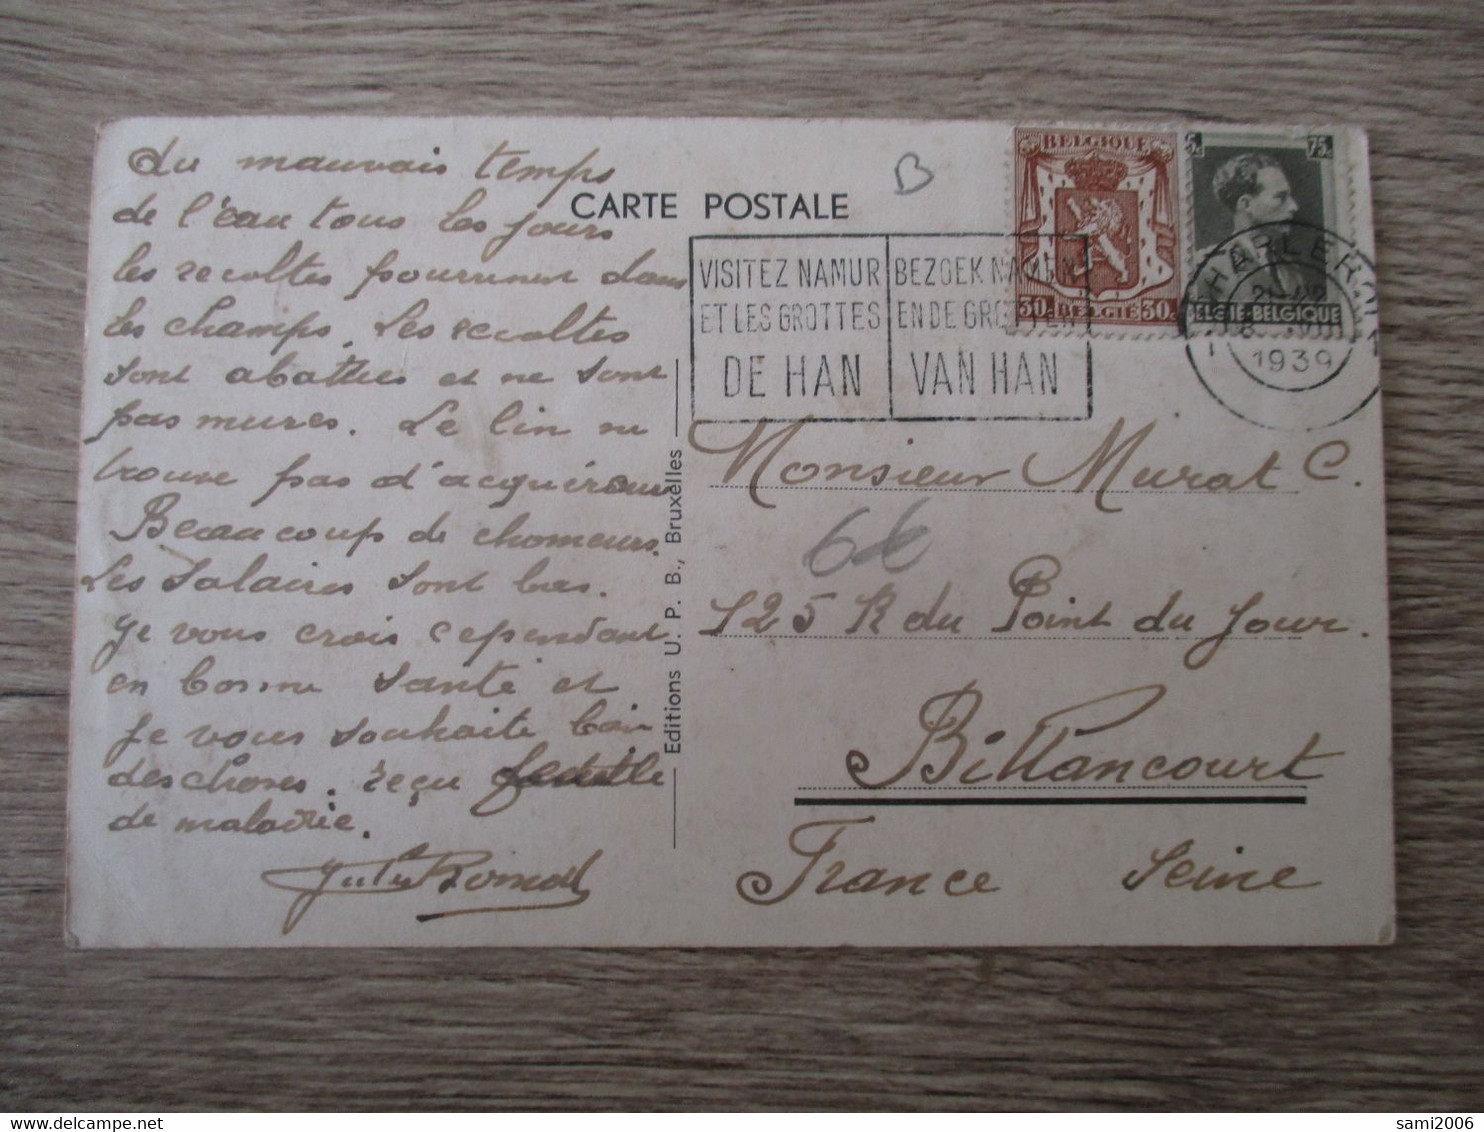 du mauvais temps
de l'eau tous les jours
les recoltes pourrissent dans
les champs. Les recoltes
sont abattues et ne sont
pas mures. Le lin ne
trouve pas d'acquéreur
Beaucoup de chomeurs.
Les salaires sont bas.
Je vous crois cependant
en bonne santé et
je vous souhaite bien
des choses. reçu
de maladie.
Jules
CARTE POSTALE
B
VISITEZ NAMUR
ET LES GROTTES
DE HAN
BEZOEK NAMEN
EN DE GROTTEN
VAN HAN
BELGIQUE
30c 30c
BELGIË
5F 75c
BELGIE-BELGIQUE
CHARLEROI
1939
Editions U. P. B., Bruxelles
Monsieur Murat C.
6€
125 R du Point du Jour.
Billancourt
France Seine
delcampe.net
sami2006